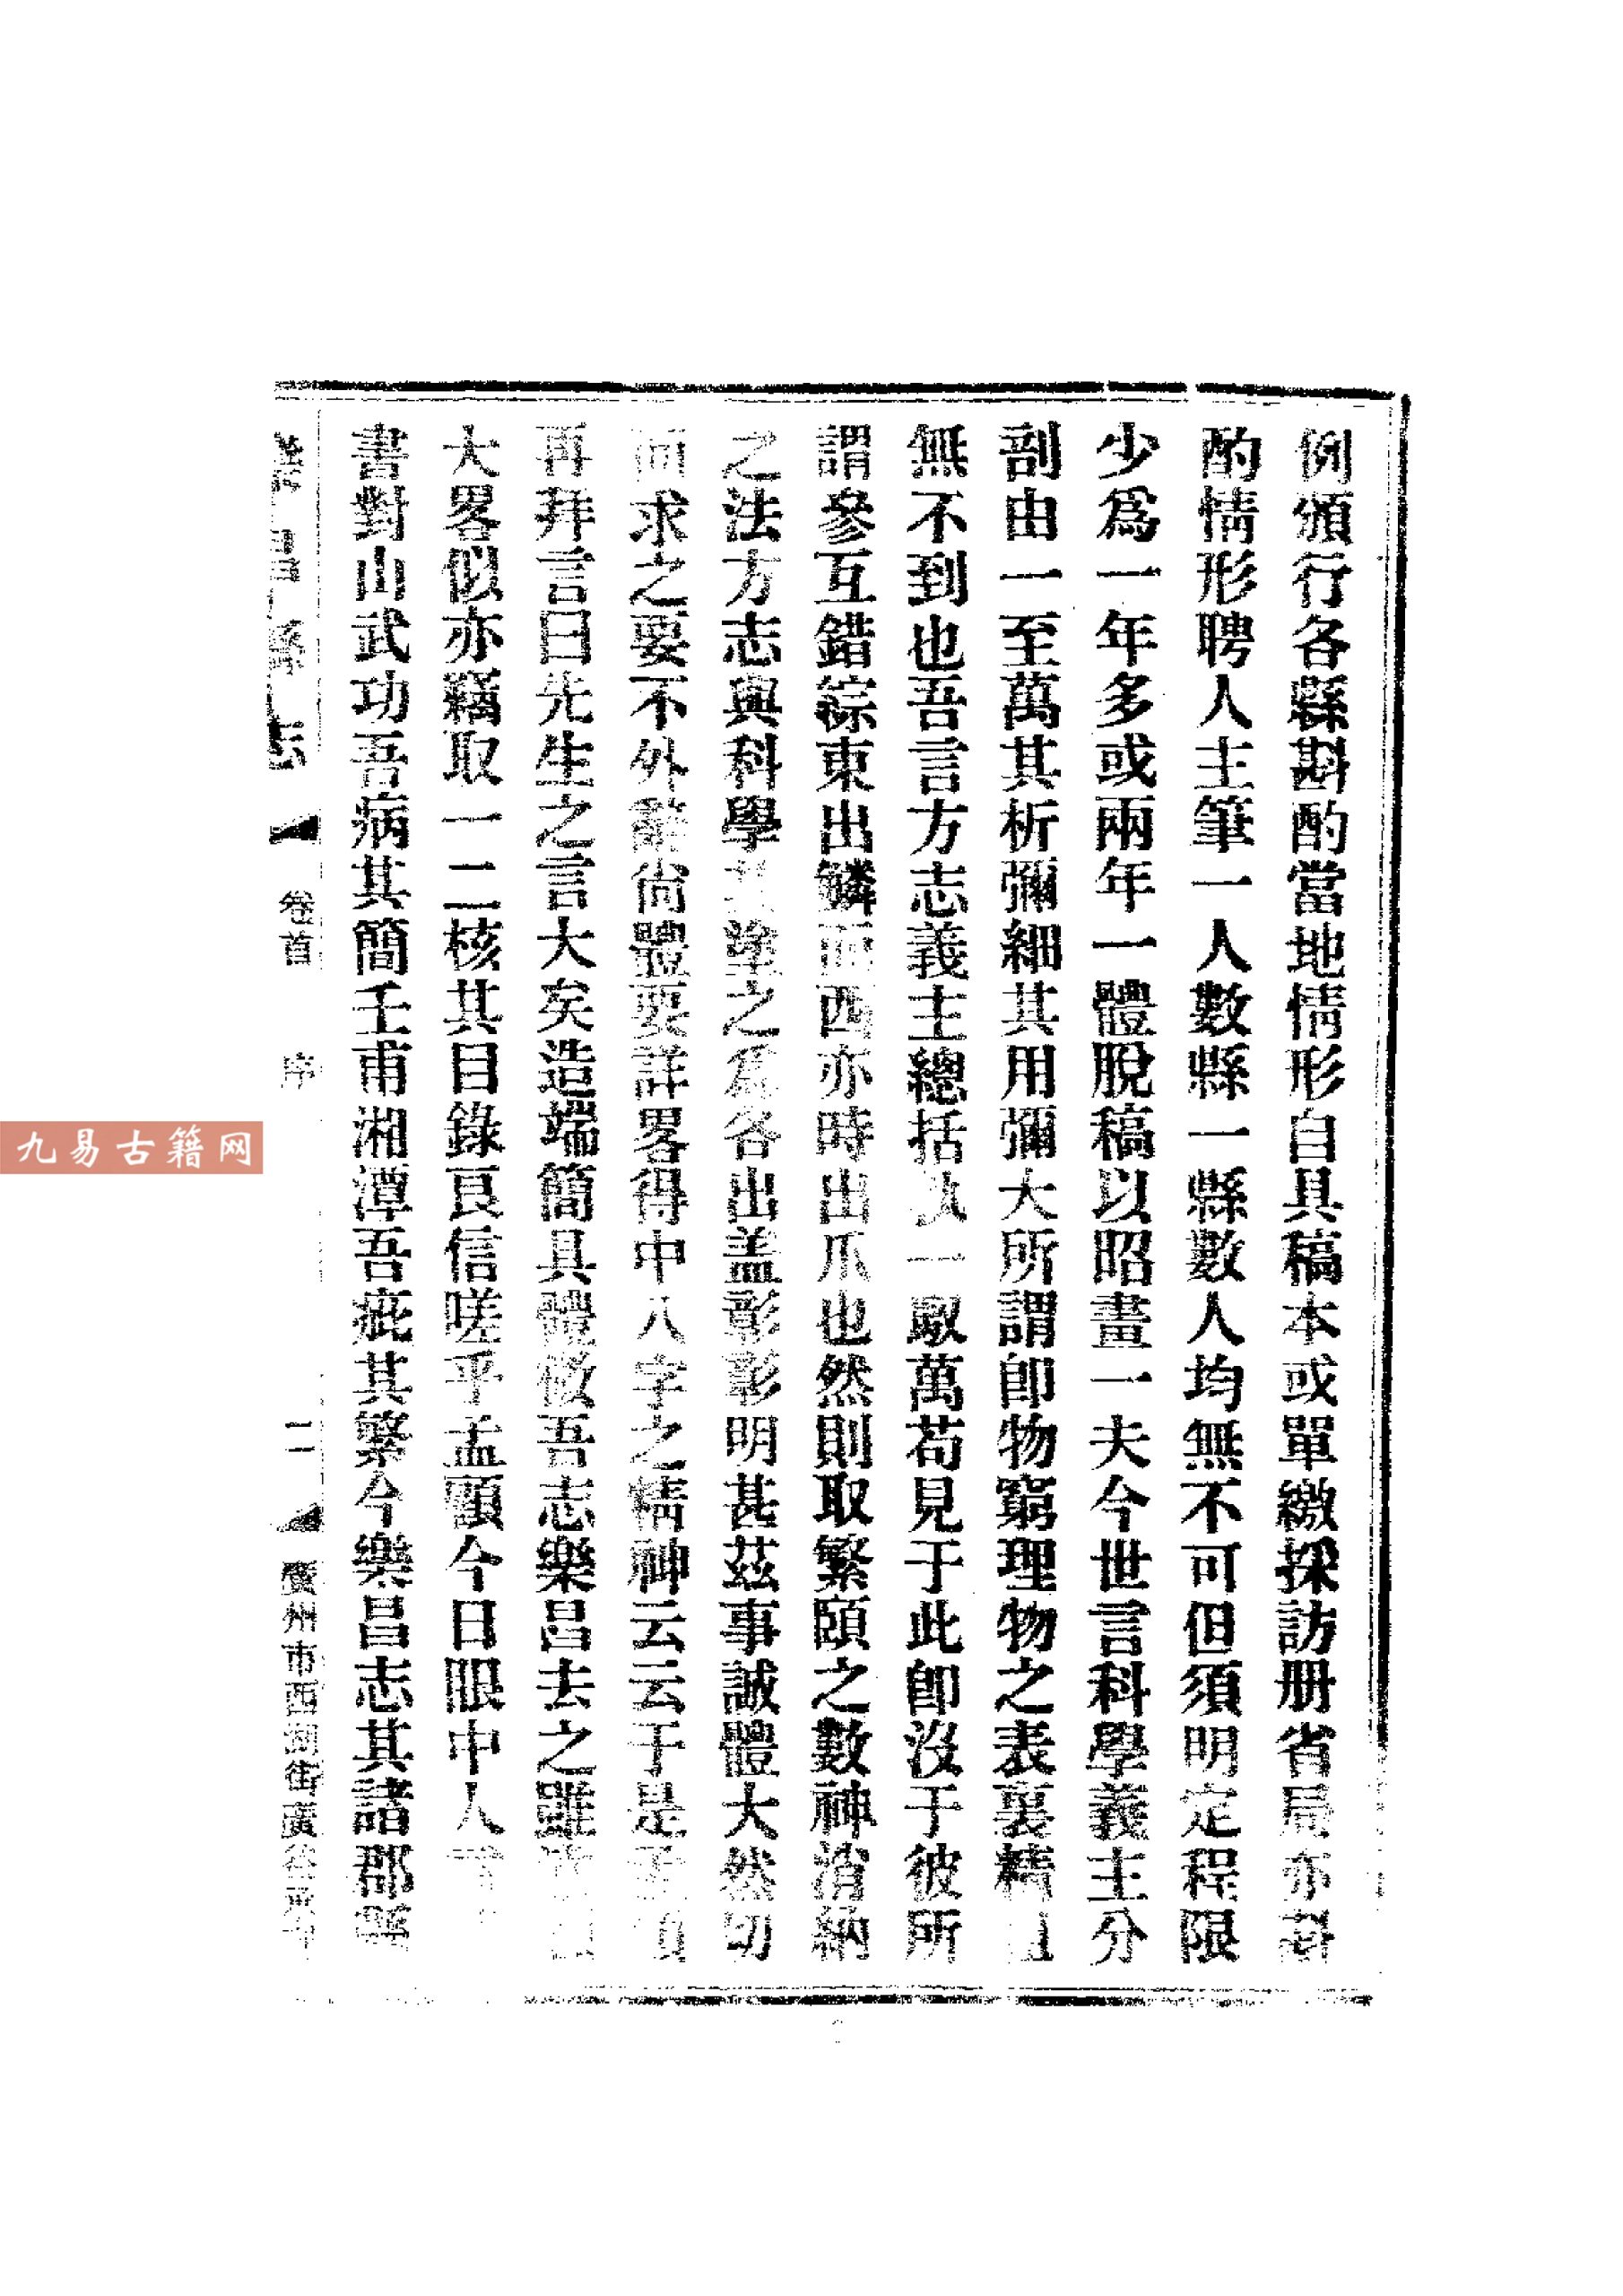 例頒行各縣斟酌當地情形自具稿本或單繳採訪册省局亦斟
酌情形聘人主筆一人數縣一縣數人均無不可但須明定程限
少爲一年多或兩年一體脫稿以昭畫一夫今世言科學義主分
剖由一至萬其析彌細其用彌大所謂卽物窮理物之表裏精粗
無不到也吾言方志義主總括以一馭萬苟見于此卽沒于彼所
謂參互錯綜東出鱗而西亦時出爪也然則取繁頤之數神消納
之法方志與科學塗之爲各出盖彰彰明甚茲事誠體大然切
而求之要不外辭尙體要詳畧得中八字之精神云云于是
再拜言曰先生之言大矣造端簡具體微吾志樂昌去之雖
大畧似亦竊取一二核其目錄良信嗟乎孟頤今日眼中人
書對山武功吾病其簡壬甫湘潭吾疵其繁今樂昌志其諸郡縣
樂昌縣志
卷首
序
二
廣州市西湖街廣
九易古籍网